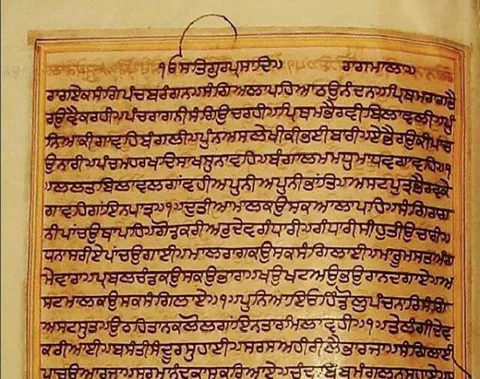 ੴਸਤਿਗੁਰਪ੍ਰਸਾਦਿ॥ ਰਾਗਮਾਲਾ॥
ਰਾਗਏਕਸੰਗਿਪੰਚਬਰੰਗਨ॥ਸੰਗਿਅਲਾਪਹਿਆਠਉਨੰਦਨ॥ਪ੍ਰਿਥਮਰਾਗਭੈ
ਰਉਵੈਕਰਹੀ॥ਪੰਚਰਾਗਨੀਸੰਗਿਉਚਰਹੀ॥ਪ੍ਰਿਥਮਭੈਰਵੀਬਿਲਾਵਲੀ॥ਪੁੰ
ਨਿਆਕੀਗਾਵਹਿਬੰਗਲੀ॥ਪੁਨਅਸਲੇਖੀਕੀਭਈਬਾਰੀ॥ਏਭੈਰਉਕੀਪਾਂਚ
ਉਨਾਰੀ॥ਪੰਚਮਹਰਖਦਿਸਾਖਸੁਨਾਵਹਿ॥ਬੰਗਾਲਮਮਧੁਮਾਧਵਗਾਵਹਿ॥੧
॥ਲਲਤਬਿਲਾਵਲਗਾਵਹੀਅਪੁਨੀਅਪੁਨੀਭਾਂਤਿ॥ਅਸਟਪੁਤ੍ਰਭੈਰਵਕੇ
ਗਾਵਹਿਗਾਇਨਪਾਤ੍ਰ॥੧॥ਦੁਤੀਆਮਾਲਕਉਸਕਆਲਾਪਹਿ॥ਸੰਗਿਰਾਗ
ਨੀਪਾਂਚਉਥਾਪਹਿ॥ਗੋਂਡਕਰੀਅਰੁਦੇਵਗੰਧਾਰੀ॥ਗੰਧਾਰੀਸੀਹੁਤੀਉਚਾਰੀ॥
ਧਨਾਸਰੀਏਪਾਂਚਉਗਾਈ॥ਮਾਲਰਾਗਕਉਸਕਸੰਗਿਲਾਈ॥ਮਾਰੂਮਸਤਅੰਗ
ਮੇਵਾਰਾ॥ਪ੍ਰਬਲਚੰਡਕਉਸਕਉਭਾਰਾ॥ਖਉਖਟਅਉਭਉਰਾਨਦਗਾਏ॥ਅ
ਸਟਮਾਲਕਉਸਕਸੰਗਿਲਾਏ॥੧॥ਪੁਨਿਆਇਓਹਿੰਡੋਲੁਪੰਚਨਾਰਿਸੰਗਿ
ਅਸਟਸੁਤ॥ਉਠਹਿਤਾਨਕਲੋਲਗਾਇਨਤਾਰਮਿਲਾਵਹੀ॥੧॥ਤੇਲੰਗੀਦੇਵ
ਕਰੀਆਈ॥ਬਸੰਤੀਸੰਦੂਰਸੁਹਾਈ॥ਸਰਸਅਹੀਰੀਲੈਭਾਰਜਾ॥ਸੰਗਿਲਾਈ
ਪਾਂਚਉਆਰਜਾ॥ਸੁਰਮਾਨੰਦਭਾਸਕਰਆਏ॥ਚੰਦ੍ਰਬਿੰਬਮੰਗਲਨਸੁਹਾਏ॥